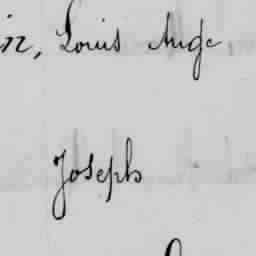 in, Louis Ange
Joseph